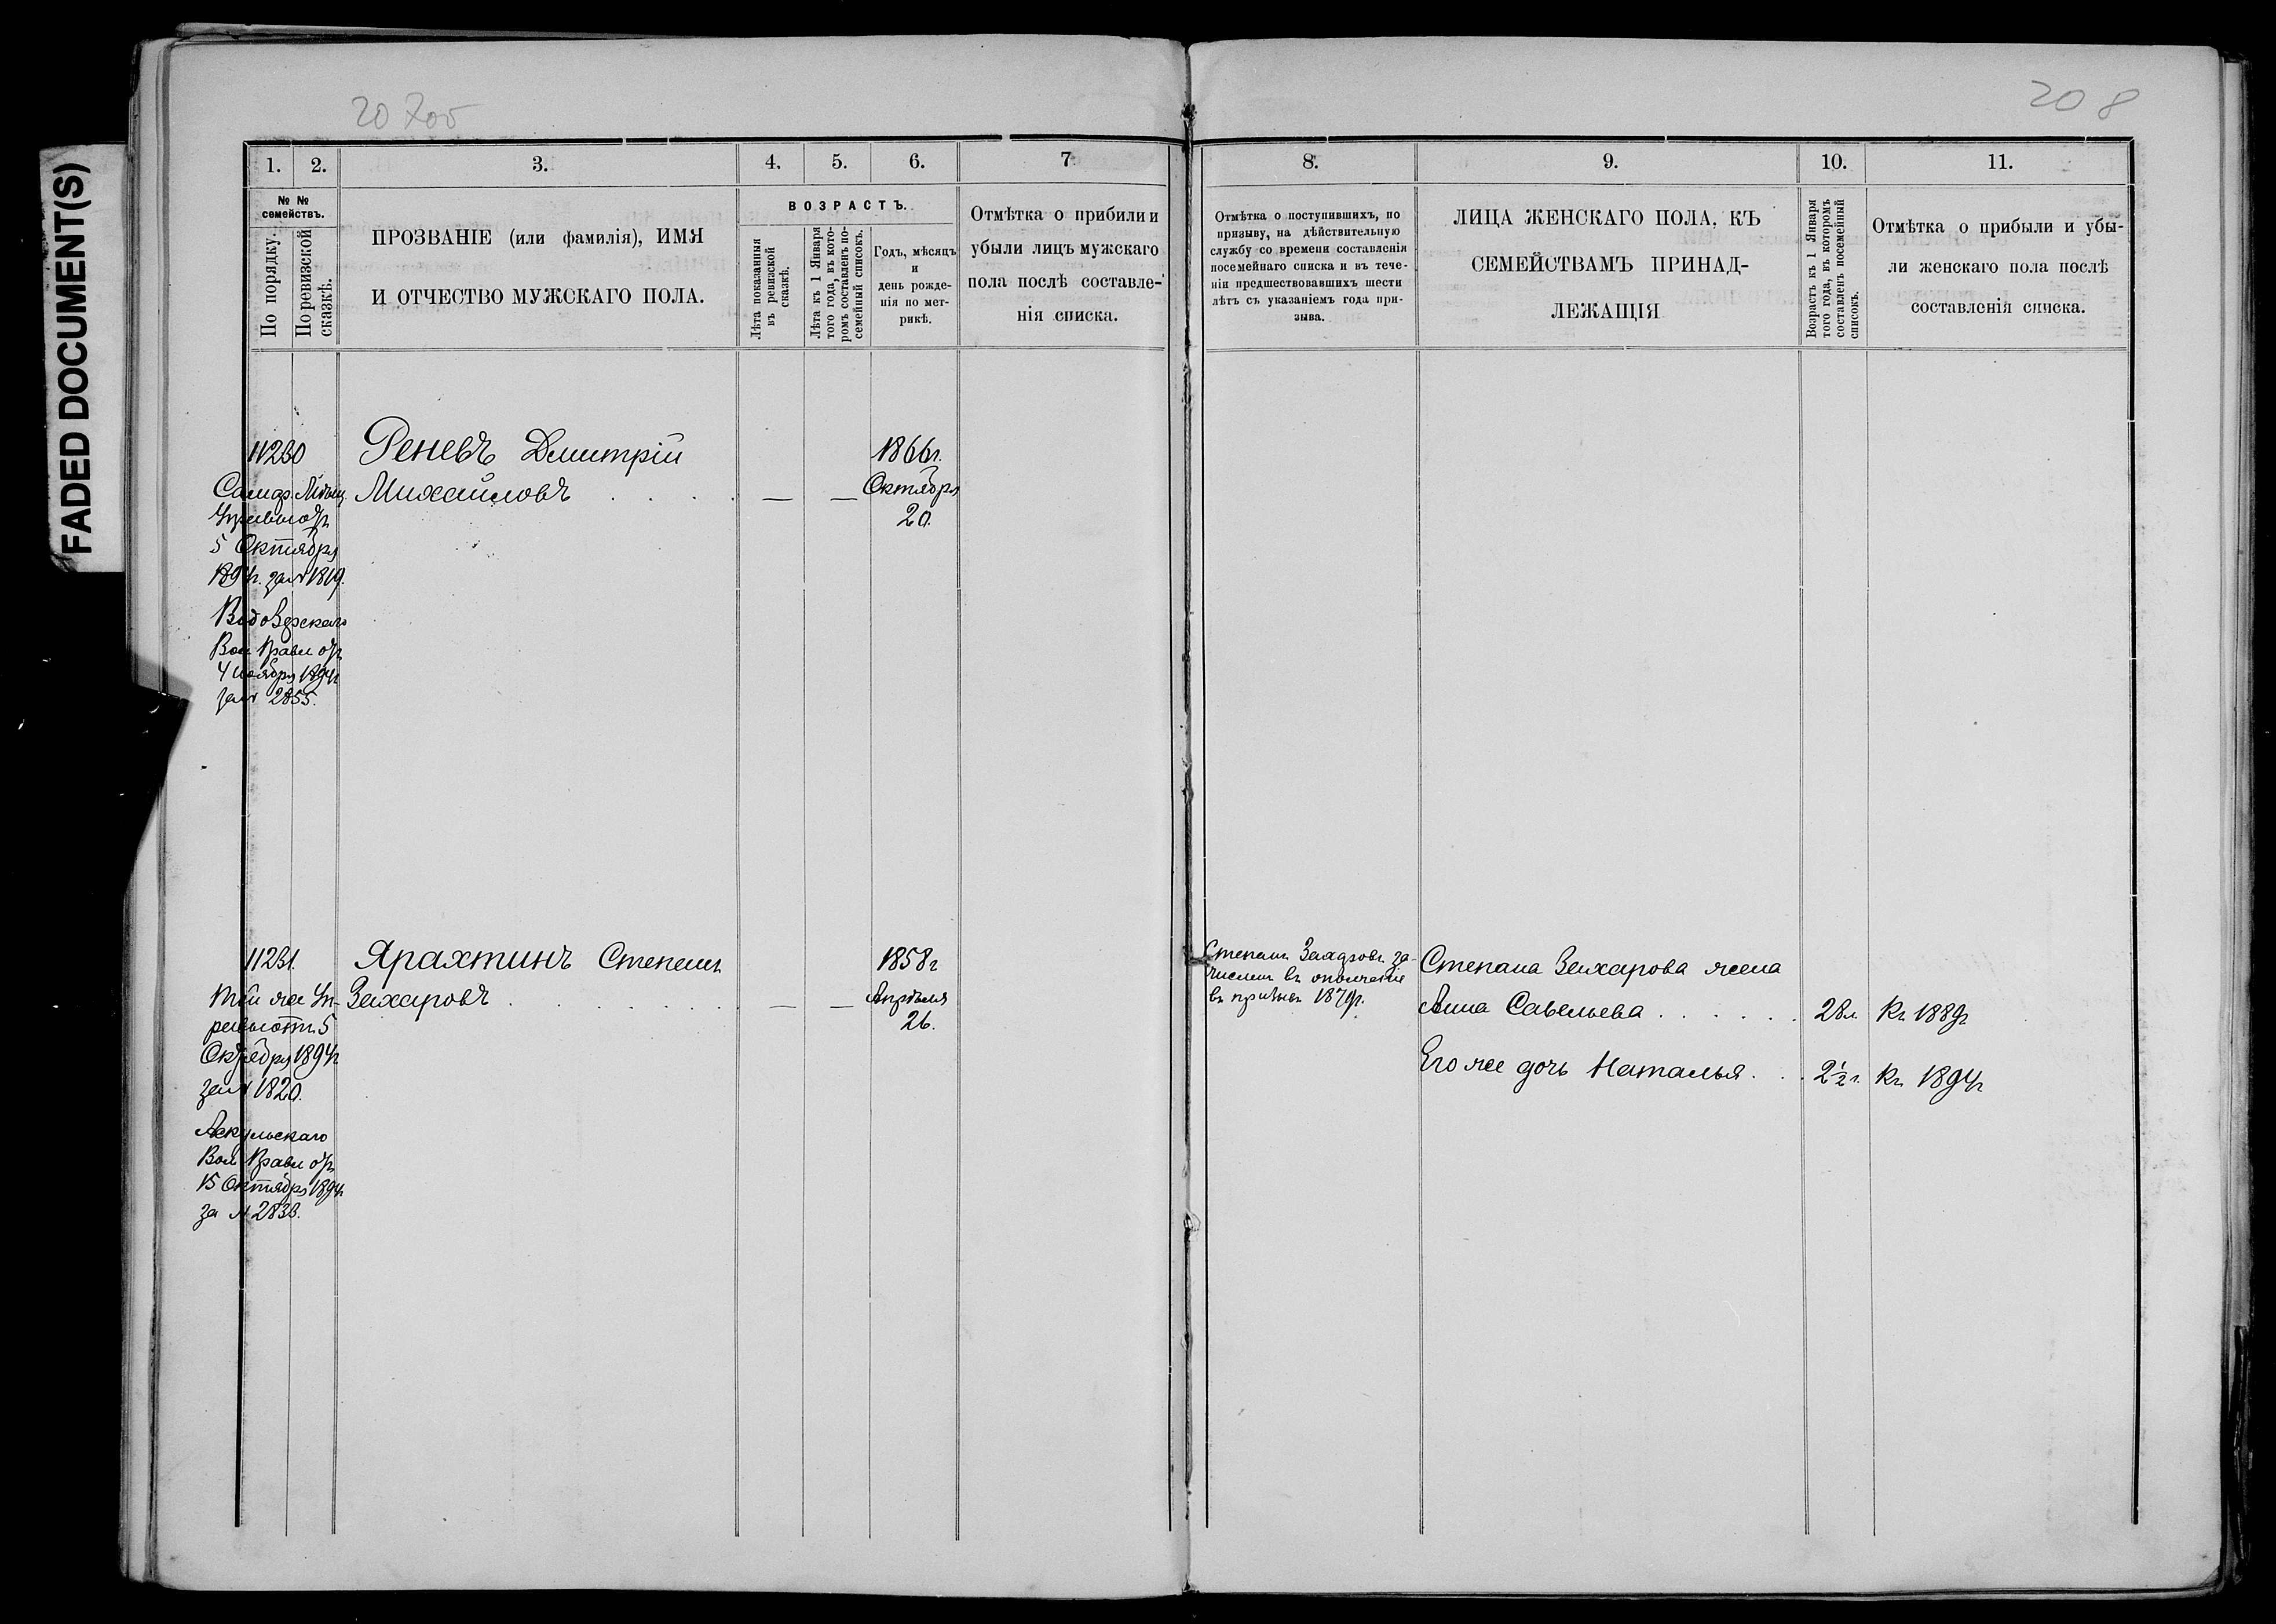 FADED DOCUMENT(S)
20 об
208
1. 2. 3. 4. 5. 6. 7.
№ №
семействъ.
По порядку.
По ревизской
сказкѣ.
ПРОЗВАНІЕ (или фамилія), ИМЯ
И ОТЧЕСТВО МУЖСКАГО ПОЛА.
ВОЗРАСТЪ.
Лѣта показанныя
въ ревизской
сказкѣ.
Лѣта къ 1 Января
того года, въ кото-
ромъ составленъ по-
семейный списокъ.
Годъ, мѣсяцъ
и
день рожде-
нія по мет-
рикѣ.
Отмѣтка о прибыли и
убыли лицъ мужскаго
пола послѣ составле-
нія списка.
8. 9. 10. 11.
Отмѣтка о поступившихъ, по
призыву, на дѣйствительную
службу со времени составленія
посемейнаго списка и въ тече-
ніи предшествовавшихъ шести
лѣтъ съ указаніемъ года при-
зыва.
ЛИЦА ЖЕНСКАГО ПОЛА, КЪ
СЕМЕЙСТВАМЪ ПРИНАД-
ЛЕЖАЩІЯ
Возрастъ къ 1 Января
того года, въ которомъ
составленъ посемейный
списокъ.
Отмѣтка о прибыли и убы-
ли женскаго пола послѣ
составленія списка.
11230 Реневъ Дмитрій 1866г.
Михайловъ . . . . — — Октября
20.
Самар. Мѣщ.
Управы отъ
5 Октября
1894г. за № 1819.
Вол. Правл. отъ
4 Ноября 1894г
за № 2855.
11231. Ярахтинъ Степанъ 1858г
Захаровъ . . . . . . — — Апрѣля
26.
Той же Уп-
равы отъ 5
Октября 1894г
за № 1820.
Вол. Правл. отъ
15 Октября 1894г
за № 2833.
Степанъ Захаровъ за-
численъ въ ополченіе
въ призывъ 1879г.
Степана Захарова жена
Анна Савельева . . . . . . 28л. Къ 1889г
Его же дочь Наталья . . . 2½ г. Къ 1894г